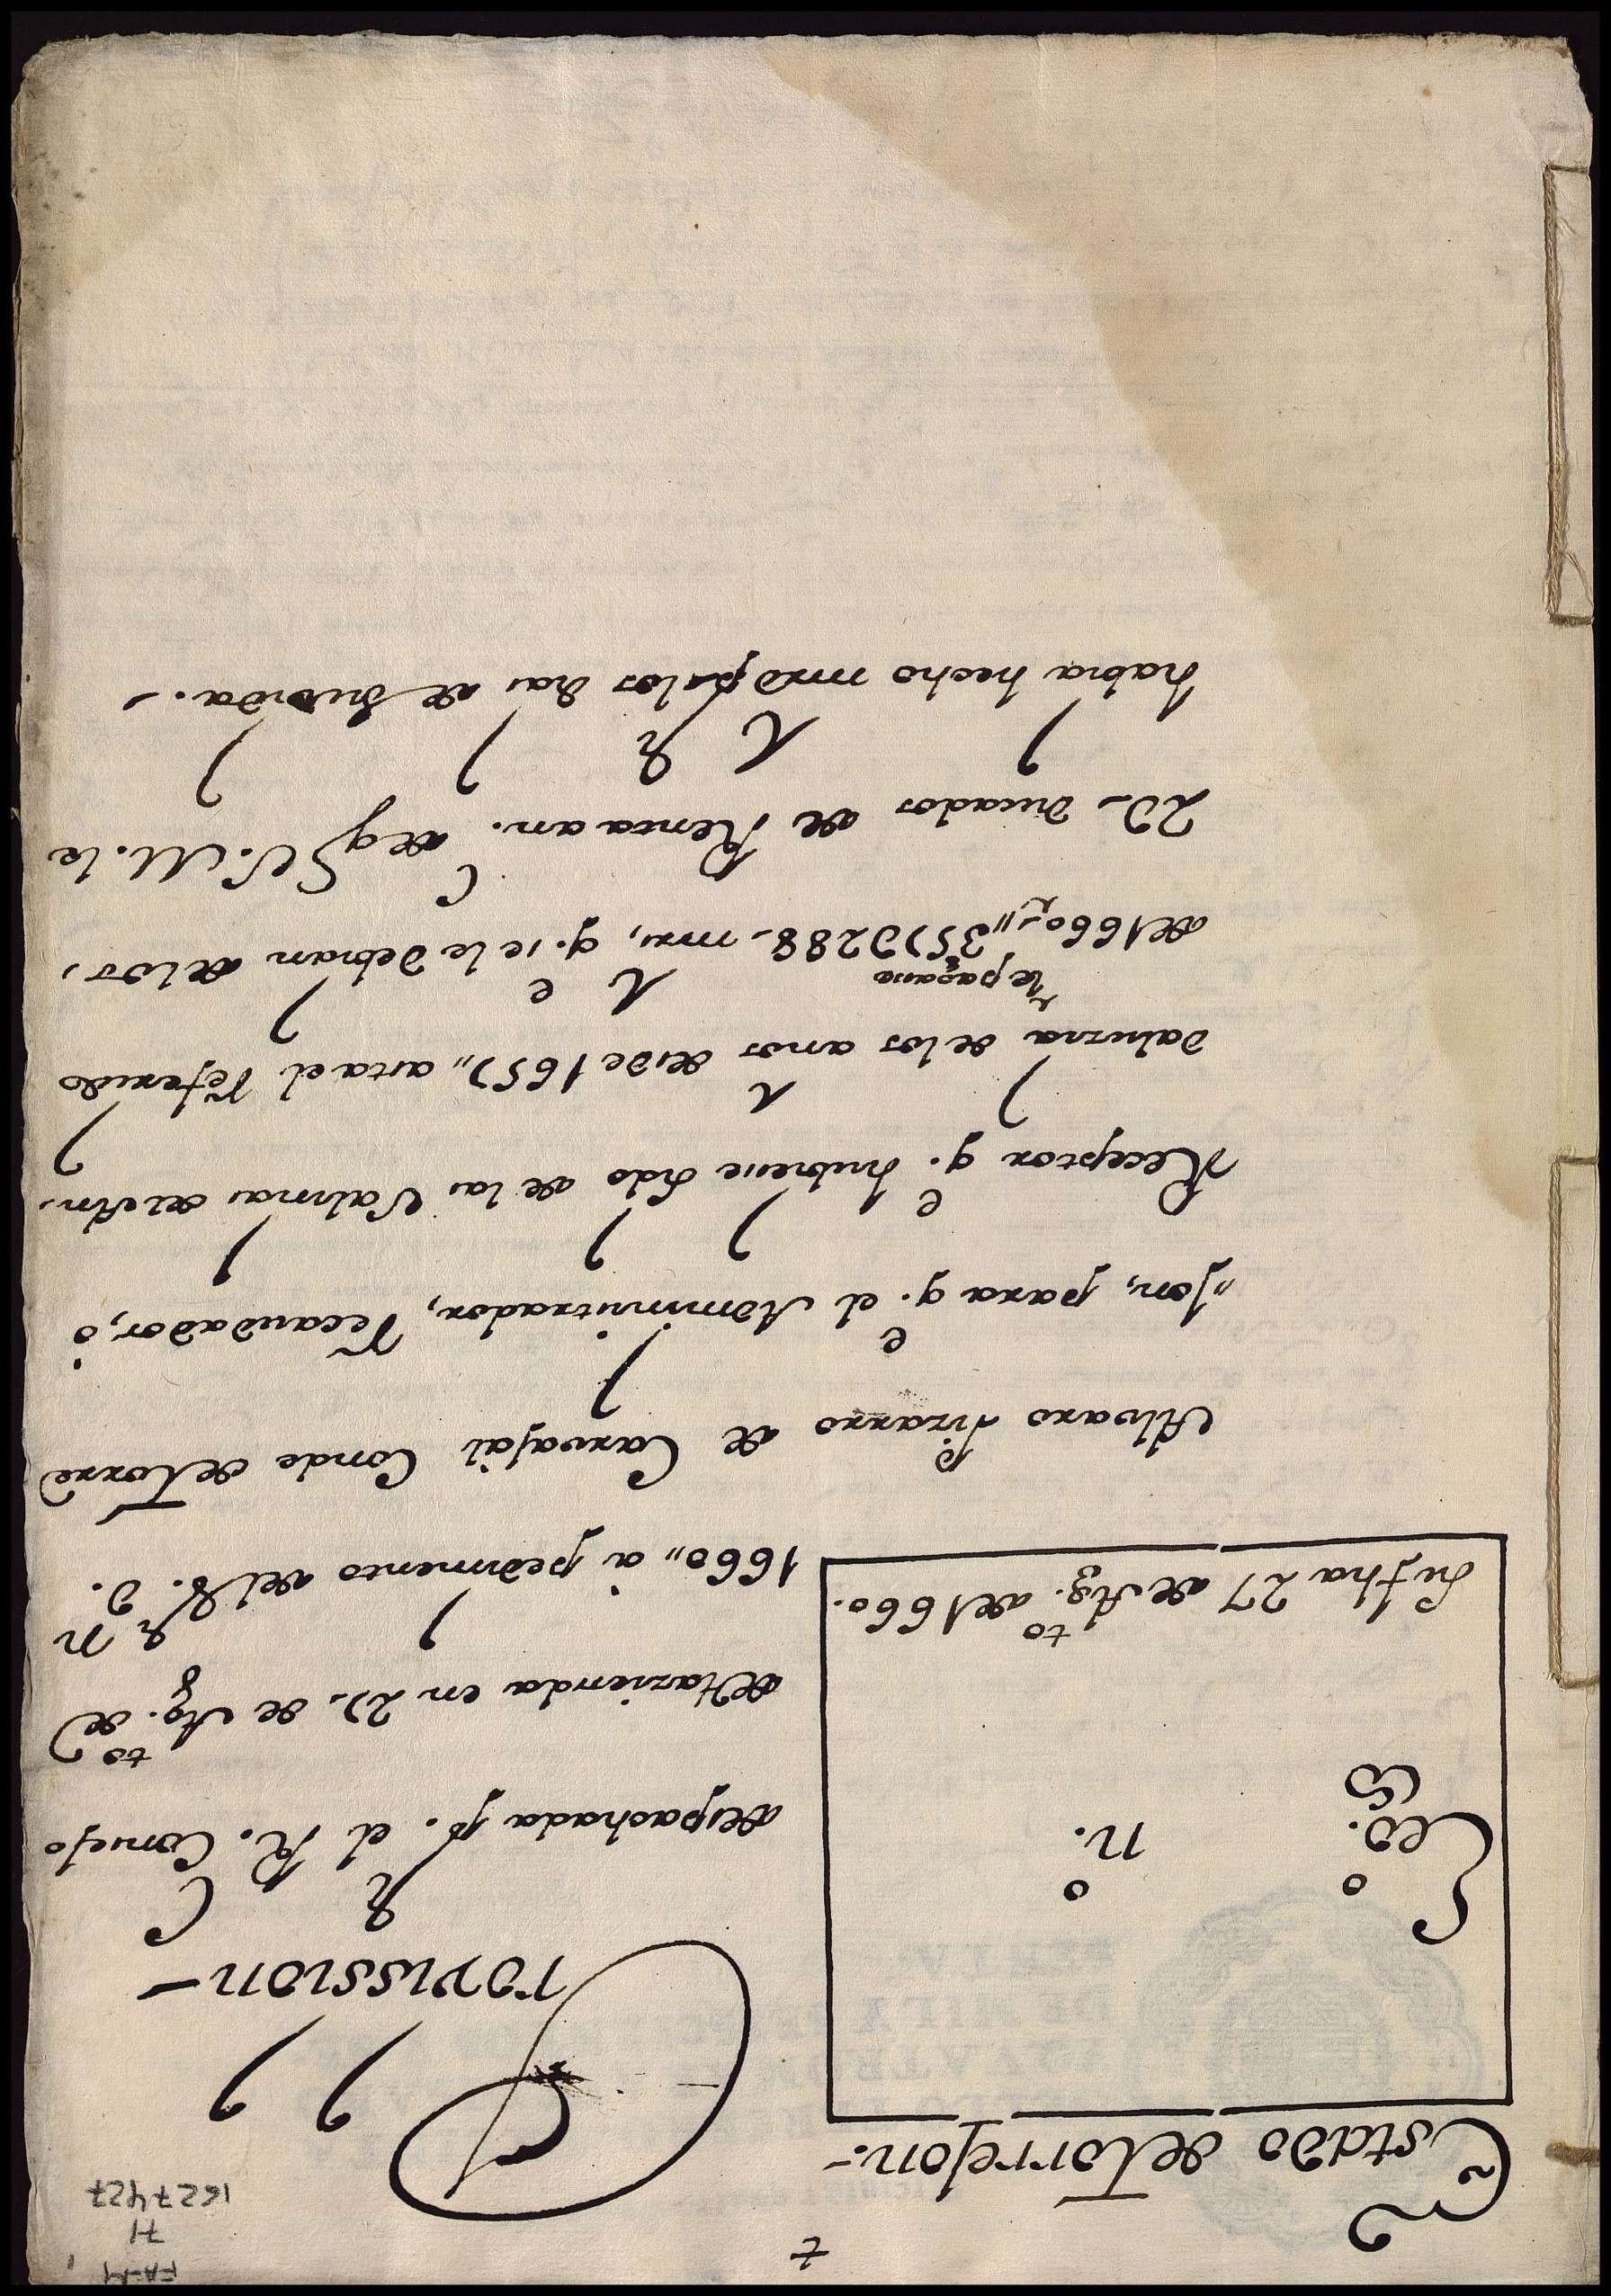 t
FA-M
71
1627427
Estado de Torrejon.-
Leg.o n.o
Su fha 27 de Ag.to de 1660.
Provission-
despachada pr. el R. Consejo
de Hazienda en 27. de Ag.to de
1660,, á pedimento del Sr. Dn
Alvaro Pizarro de Carvajal Conde de Torre
,,jon, para q.e el Administrador, recaudador, ó
Receptor q.e hubiese sido de las Salinas de el An-
daluzia de los anos desde 1657,, asta el referido
de 1660,, le pagase 357D288. mrs, q.e se le debian de los
2D. ducados de Renta an. de q S. M. le
habia hecho mrd pr los dias de su vida.-